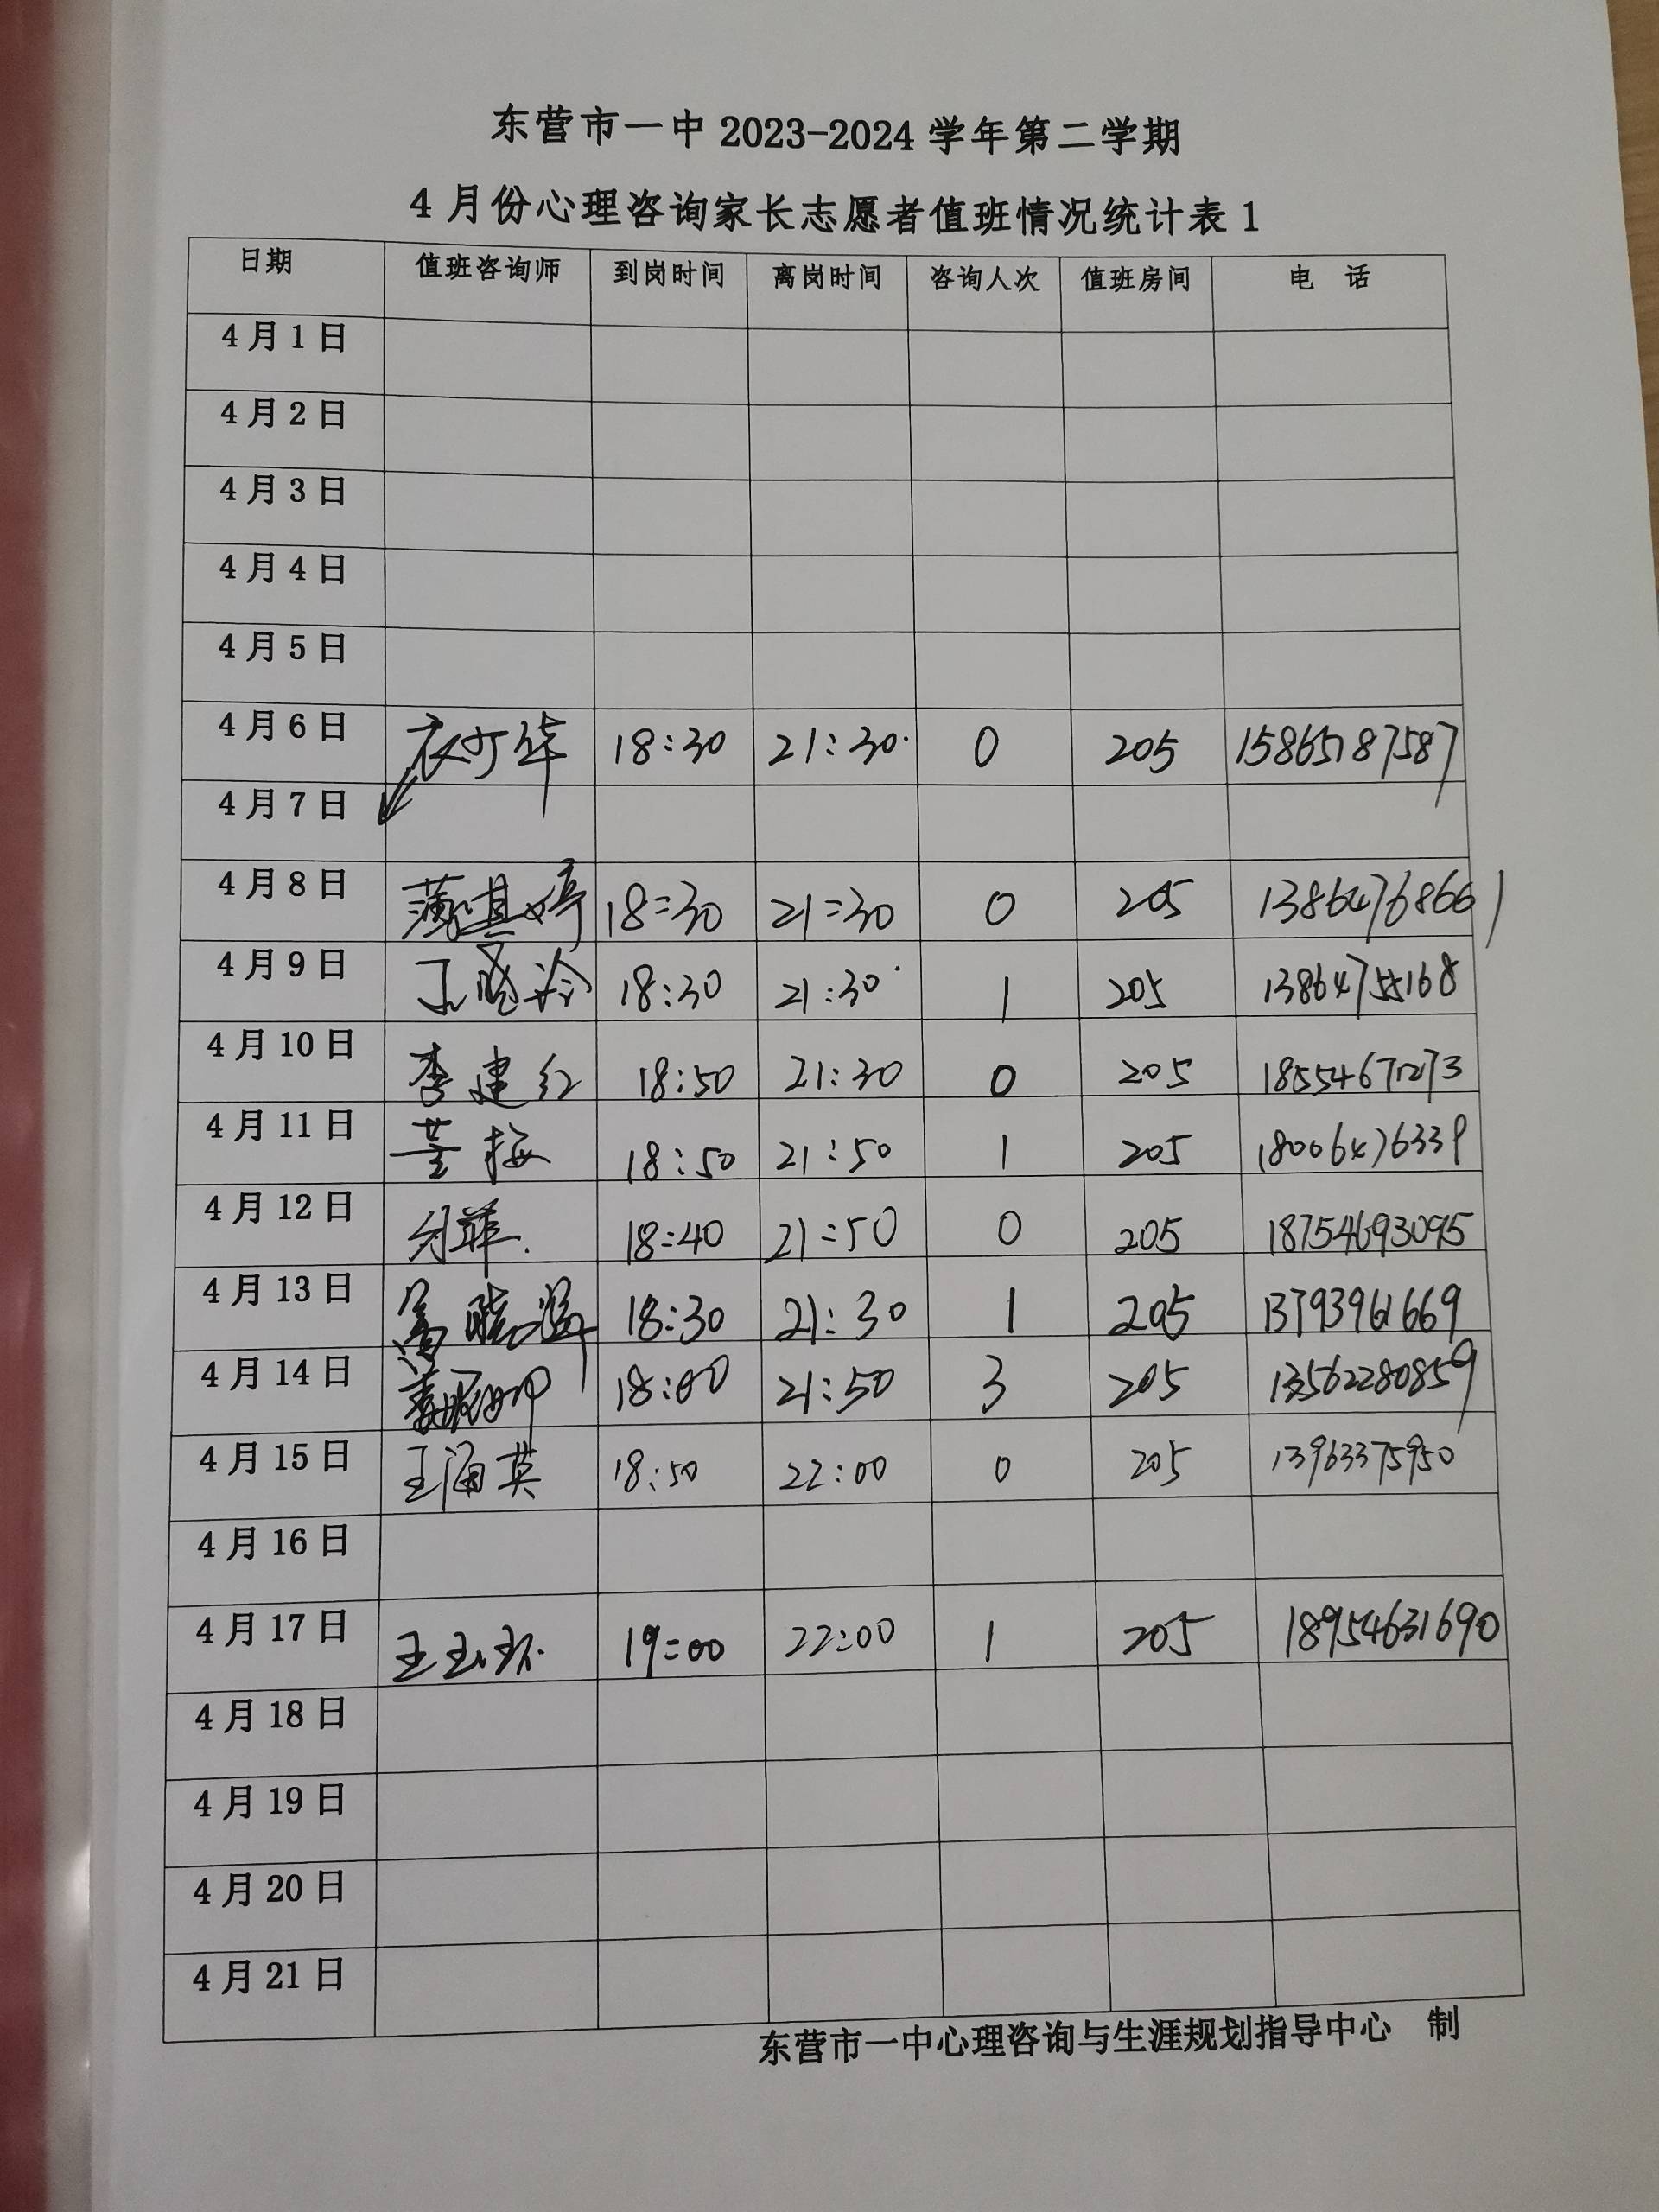 东营市一中 2023-2024 学年第二学期
4 月份心理咨询家长志愿者值班情况统计表 1
日期 值班咨询师 到岗时间 离岗时间 咨询人次 值班房间 电 话
4 月 1 日
4 月 2 日
4 月 3 日
4 月 4 日
4 月 5 日
4 月 6 日 18:30 21:30 0 205 15865187587
4 月 7 日
4 月 8 日 18:30 21:30 0 205 13864768661
4 月 9 日 18:30 21:30 1 205 13864755168
4 月 10 日 李建红 18:50 21:30 0 205 18554671273
4 月 11 日 董梅 18:50 21:50 1 205 18006476339
4 月 12 日 18:40 21:50 0 205 18754693095
4 月 13 日 18:30 21:30 1 205 13793961669
4 月 14 日 18:00 21:50 3 205 13562280859
4 月 15 日 王海英 18:50 22:00 0 205 13963375950
4 月 16 日
4 月 17 日 王玉环 19:00 22:00 1 205 18954631690
4 月 18 日
4 月 19 日
4 月 20 日
4 月 21 日
东营市一中心理咨询与生涯规划指导中心 制